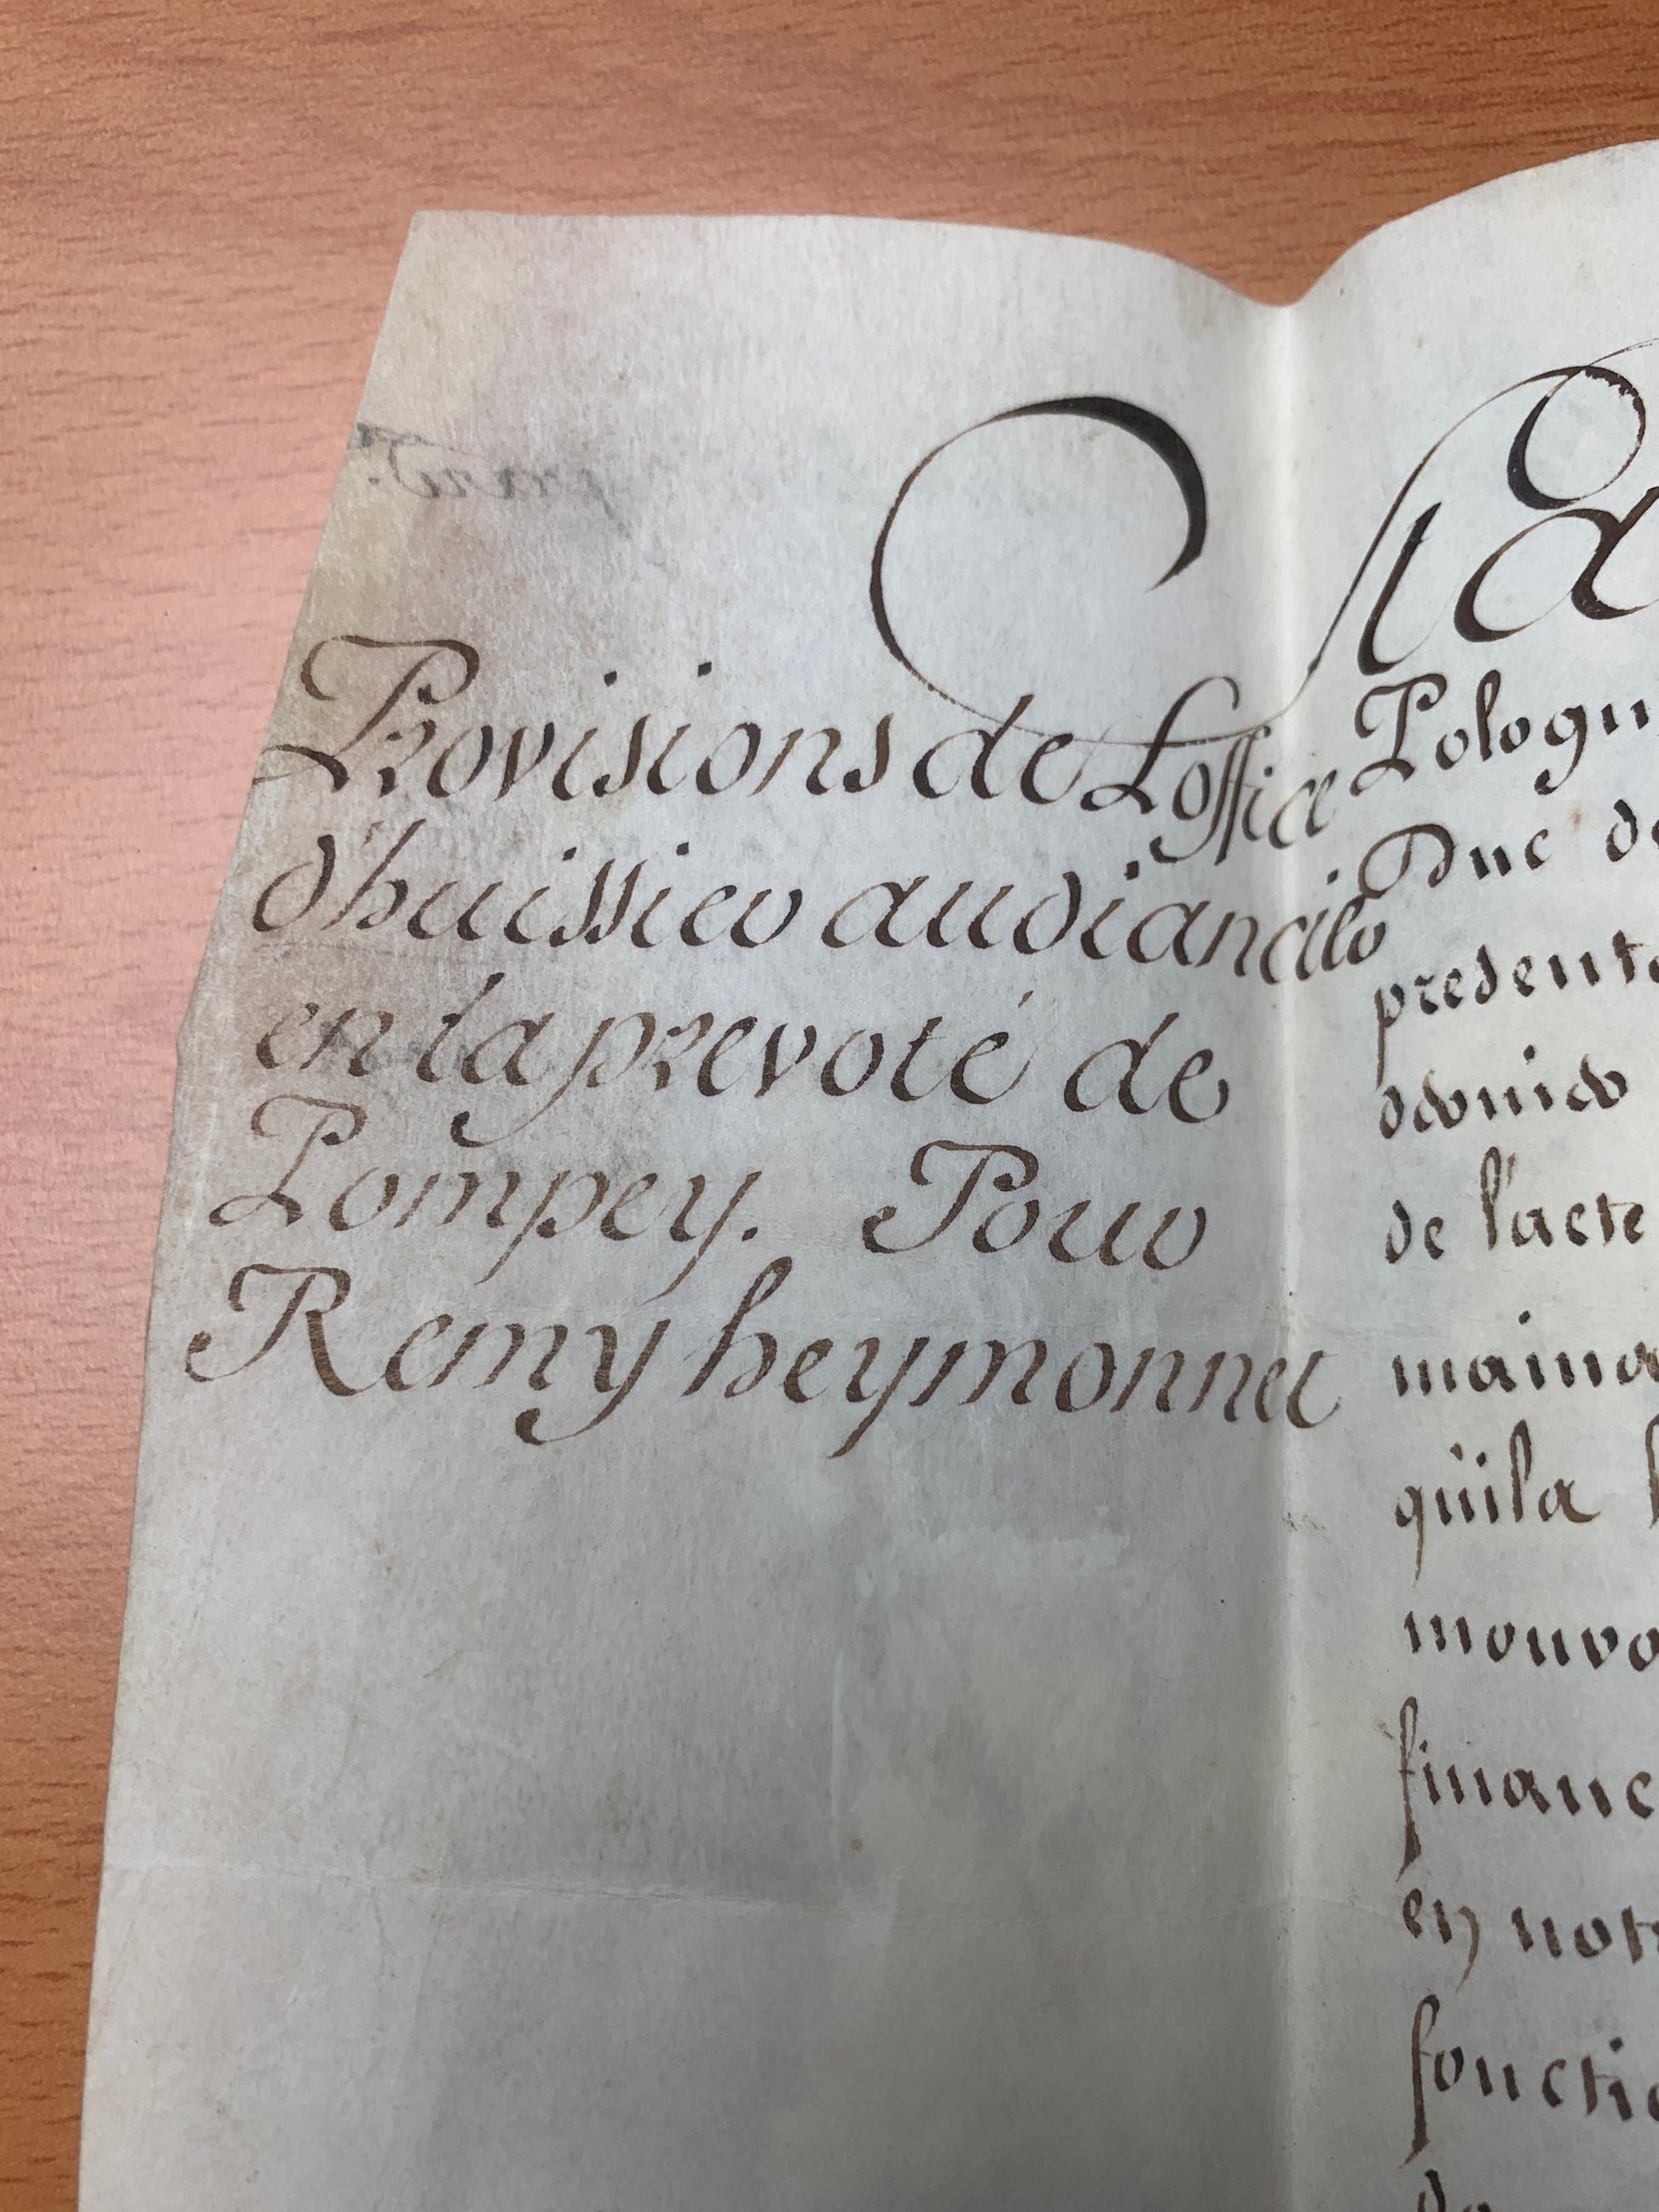 Provisions de Loffice
d'huissier audiancier
en la prevoté de
Pompey. Pour
Remy heymonnet
Sta
Pologn
Duc de
present
de l'acte
maina
qu'il a
mouvo
financ
en notr
fonctio
de